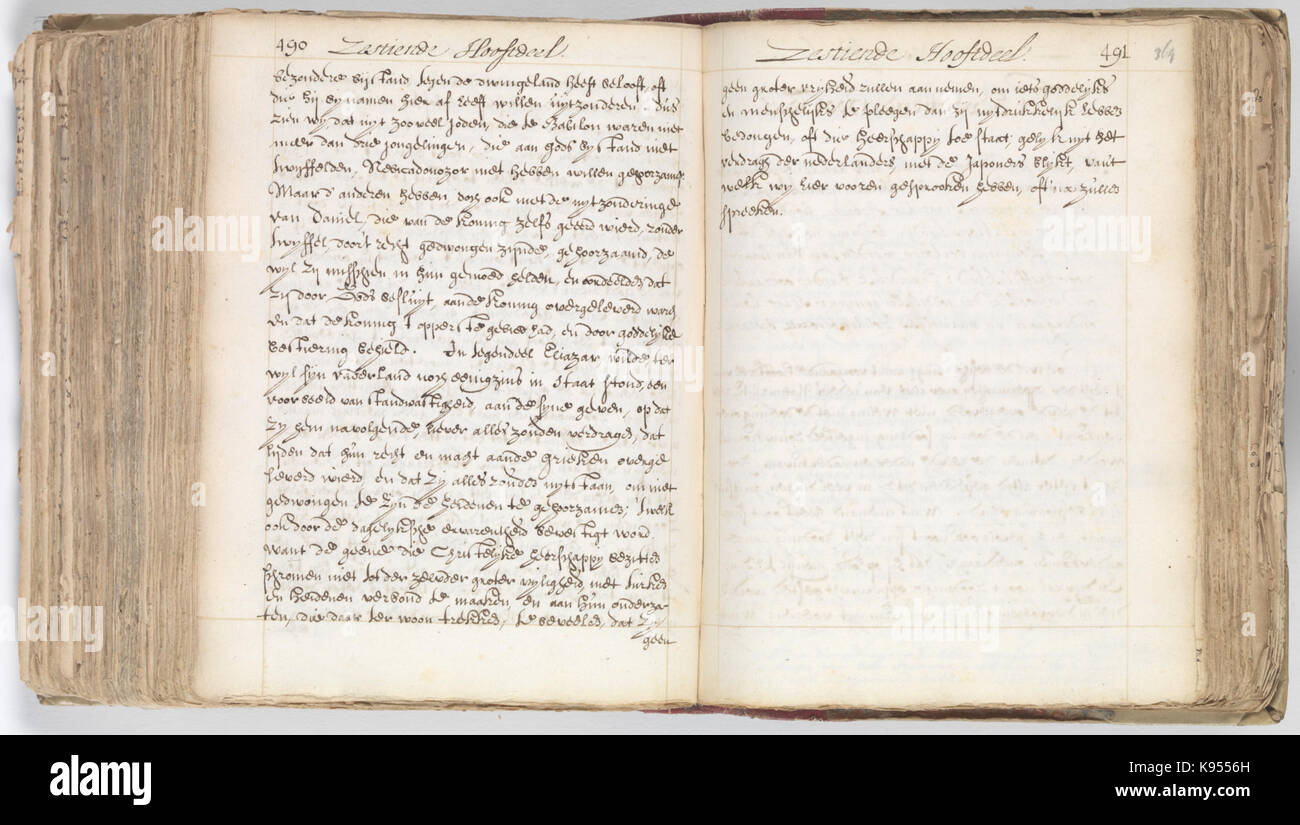 490 Zestiende Hooftdeel.
bezondere bijstand tegen de dwingeland heeft belooft, oft
die hij by namen hier af heeft willen uytzonderen. Dus
zien wy dat uyt zooveel Joden, die te Babilon waren niet
meer dan drie jongelingen, die aan gods bystand niet
twyffelden, Nebucadonozor niet hebben willen gehoorzamen.
Maar d' anderen hebben, doch ook met de uytzonderinge
van Daniel, die van de Koning zelfs geeerd wierd, zonder
twyffel, door't recht gedwongen zijnde, gehoorzaamd, de
wyl zij misschien in hun gemoed helden, en oordeelden, dat
zij door Gods besluyt, aan de Koning overgeleverd waren
en dat de Koning t opperste gebied had, en door goddelyke
bestiering behield. In tegendeel Eliazar wilde ter
wyl syn vaderland noch eenigzins in staat stond, een
voorbeeld van standvastigheid, aan de syne geven, op dat
zy hem navolgende, liever alles zouden verdragen, dat
lijden dat hun recht en macht aan de Grieken overge
leverd wierd en dat zy alles zouden uytstaan, om niet
gedwongen te zyn de heidenen te gehoorzamen; 't welk
ook door de dagelyksche ervarentheid bevestigt word.
want de geene die Christelyke heerschappy bezitten
schromen niet tot der zelvder groter vyligheid, met Turken
en heidenen verbond te maaken, en aan hun onderza-
ten, die daar ter woon trekken, te beveelen, dat zy
geen
Zestiende Hooftdeel. 491
364
geen groter vryheid zullen aannemen, om iets goddelyks
en menschelyks te pleegen dan zij uytdrukkelyk hebben
bedongen, oft die heerschappy toe staat; gelyk uyt het
verdrag der nederlanders met de Japoners blykt, van't
welk wy hier vooren gesprooken hebben, oft nu zullen
spreeken.
alamy
alamy stock photo
K9556H
www.alamy.com